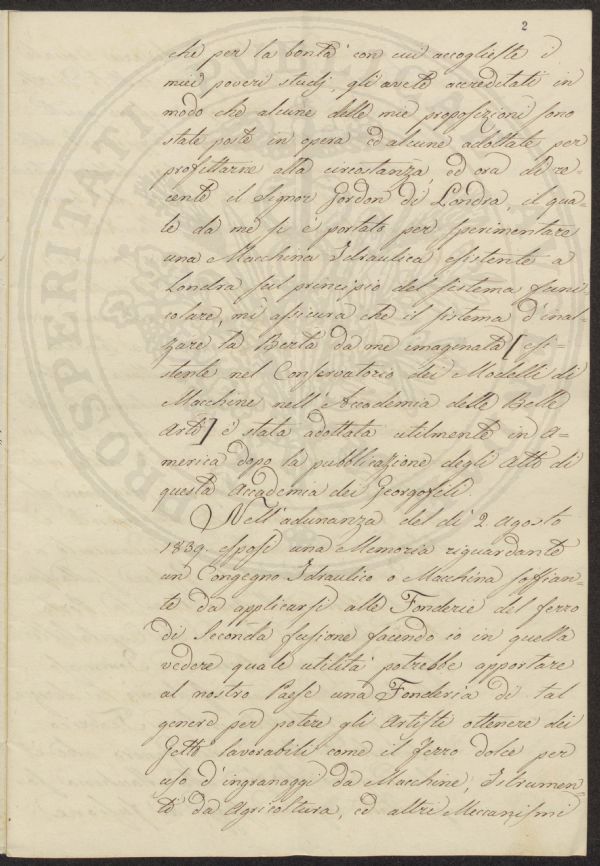 2
che per la bontà con cui accoglieste i
miei poveri studj, gli avete accreditati in
modo che alcune delle mie proposizioni sono
state poste in opera ed alcune adottate per
profittarne alla circostanza, ed ora di re=
cente il Signor Gordon di Londra, il qua=
le da me si è portato per sperimentare
una Macchina Idraulica esistente a
Londra sul principio del sistema funi=
colare, mi assicura che il sistema d'inal=
zare la Berta da me imaginata [esi=
stente nel Conservatorio dei Modelli di
Macchine nell'Accademia delle Belle
Arti] è stata adottata utilmente in A=
merica dopo la pubblicazione degli Atti di
questa Accademia dei Georgofili.
Nell'adunanza del dì 2 Agosto
1839. esposi una Memoria riguardante
un Congegno Idraulico o Macchina soffian=
te da applicarsi alle Fonderie del ferro
di seconda fusione facendo io in quella
vedere quale utilità potrebbe apportare
al nostro Paese una Fonderia di tal
genere per potere gli Artisti ottenere dei
Getti lavorabili come il Ferro dolce per
uso d'ingranaggi da Macchine, Istrumen=
ti da Agricoltura, ed altri Meccanismi
PROSPERITATI